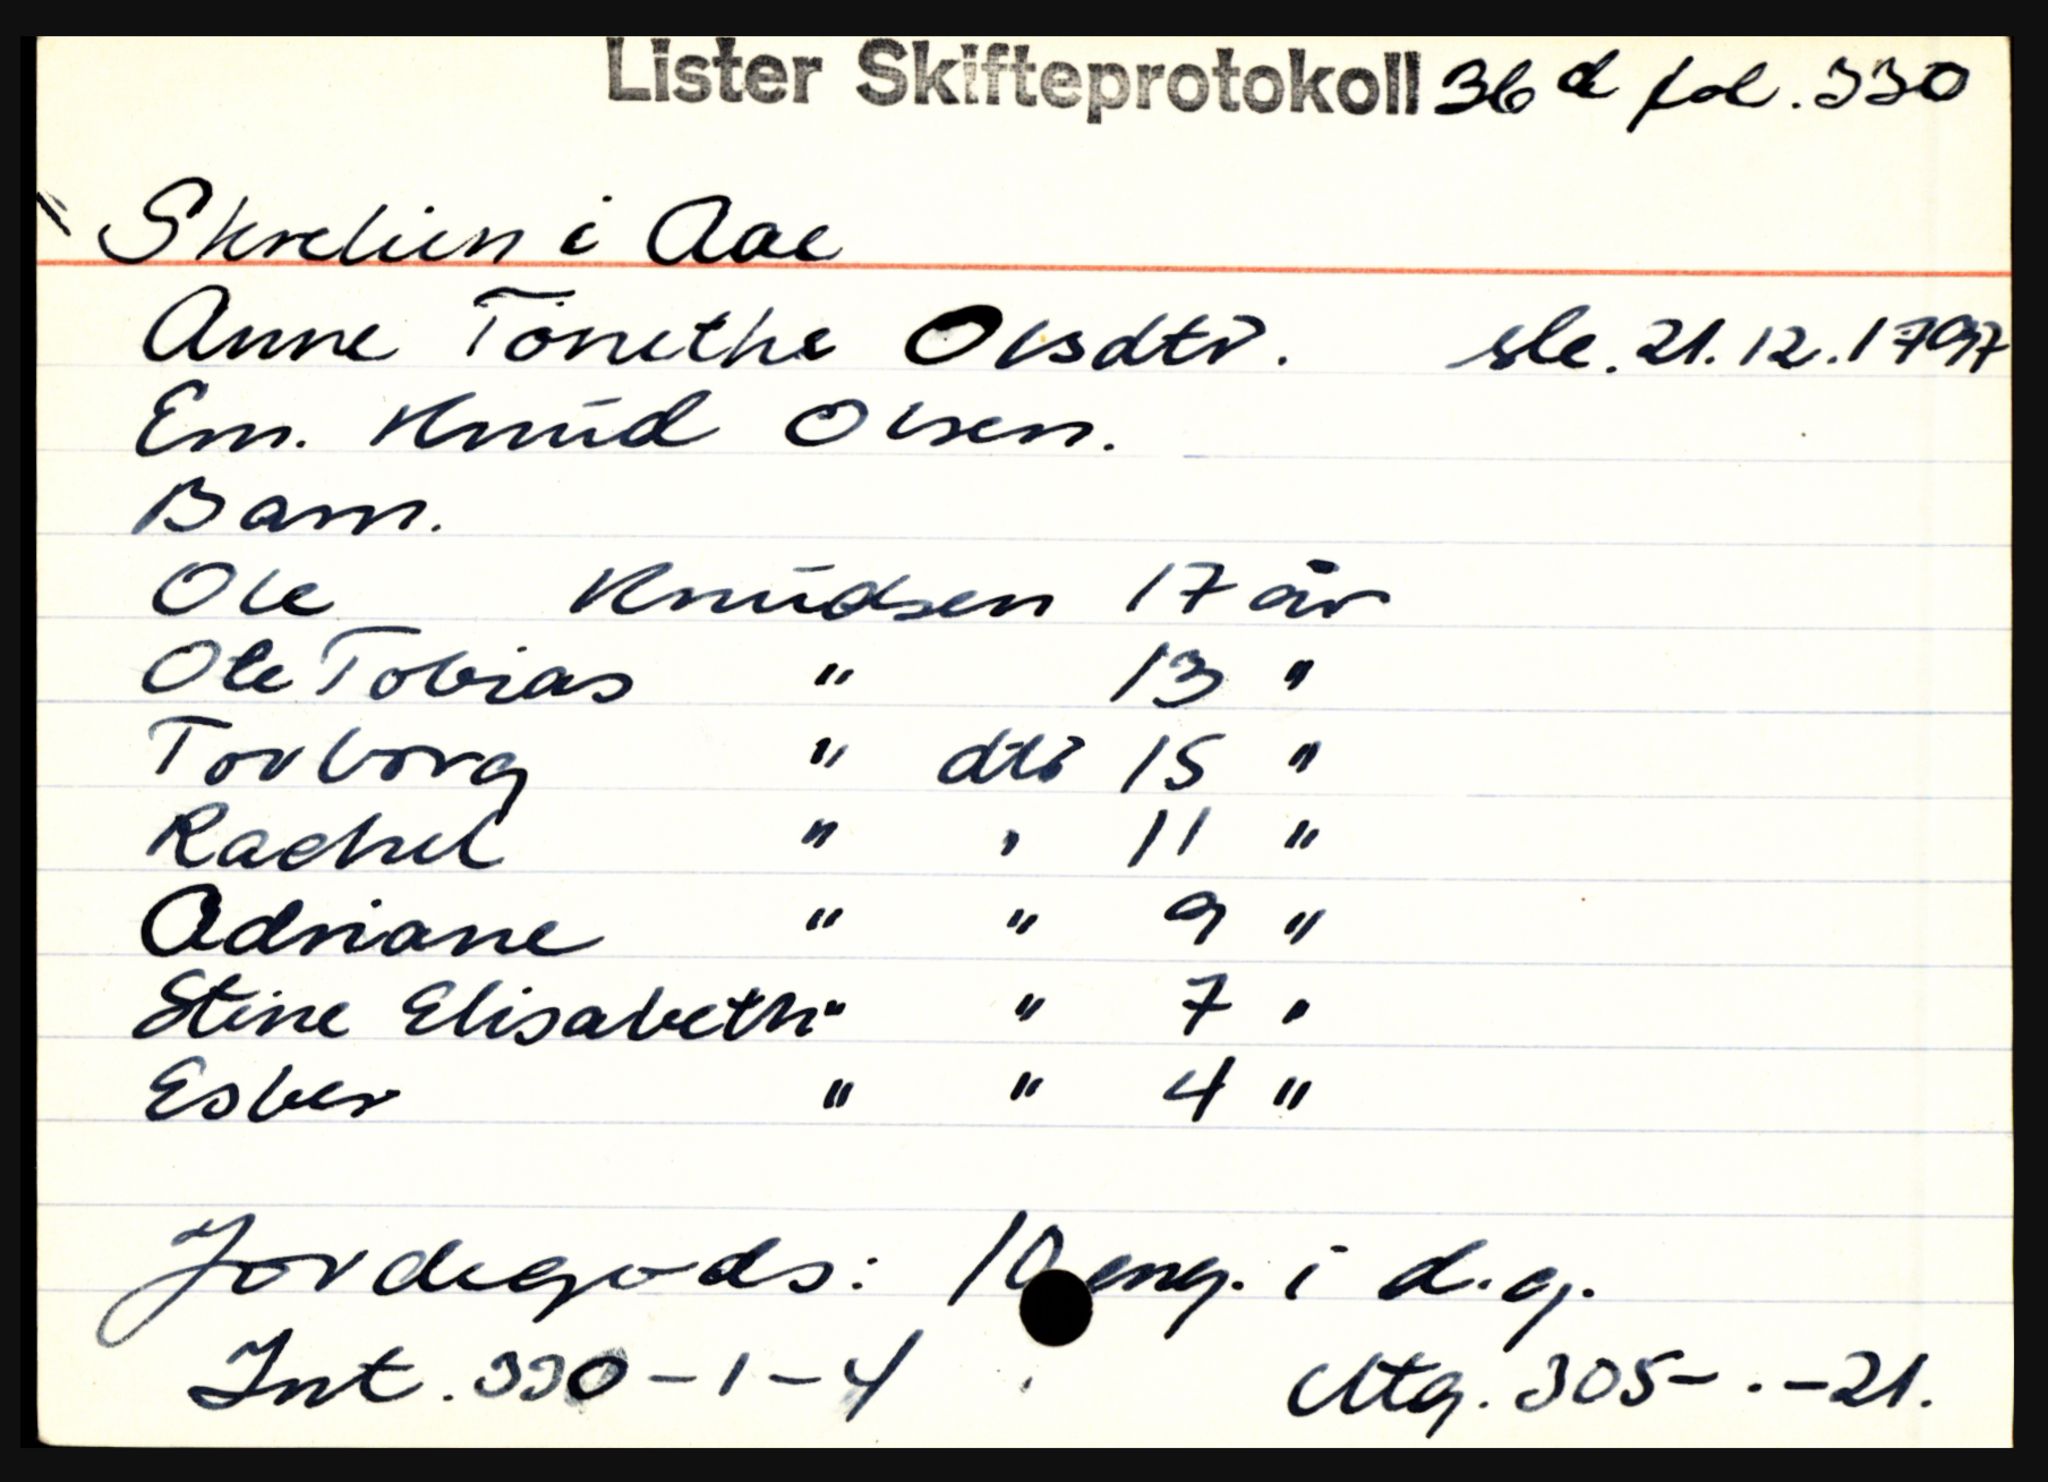 Lister Skifteprotokoll 36 d fol. 330
Skrelien i Aae
Anne Tönethe Olsdtr. sle. 21.12.1797
Em. Knud Olsen.
Barn.
Ole Knudsen 17 år
Ole Tobias " 13 "
Torborg " dtr 15 "
Rachel " " 11 "
Adriane " " 9 "
Stine Elisabeth " " 7 "
Esber " " 4 "
Jordegods: 10 eng. i d.g.
Int. 330-1-4 Utg. 305-.-21.